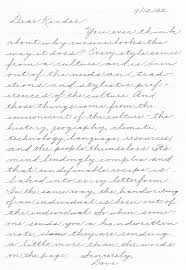 9/12/22
Dear Reader,
You ever think
about why cursive looks the
way it does? Every style came
from a culture and is born
out of the needs and trad-
itions and stylistic pref-
erences of the culture. And
those things come from the
environment of the culture - the
history, geography, climate,
technology, language, resources,
and the people themselves. Its
mind bendingly complex and
that undefinable recipe is
baked into every letterform.
In the same way, the handwriting
of an individual is born out of
the individual. So when some-
one sends you a handwritten
note, they are sending
a little more than the words
on the page. Sincerely,